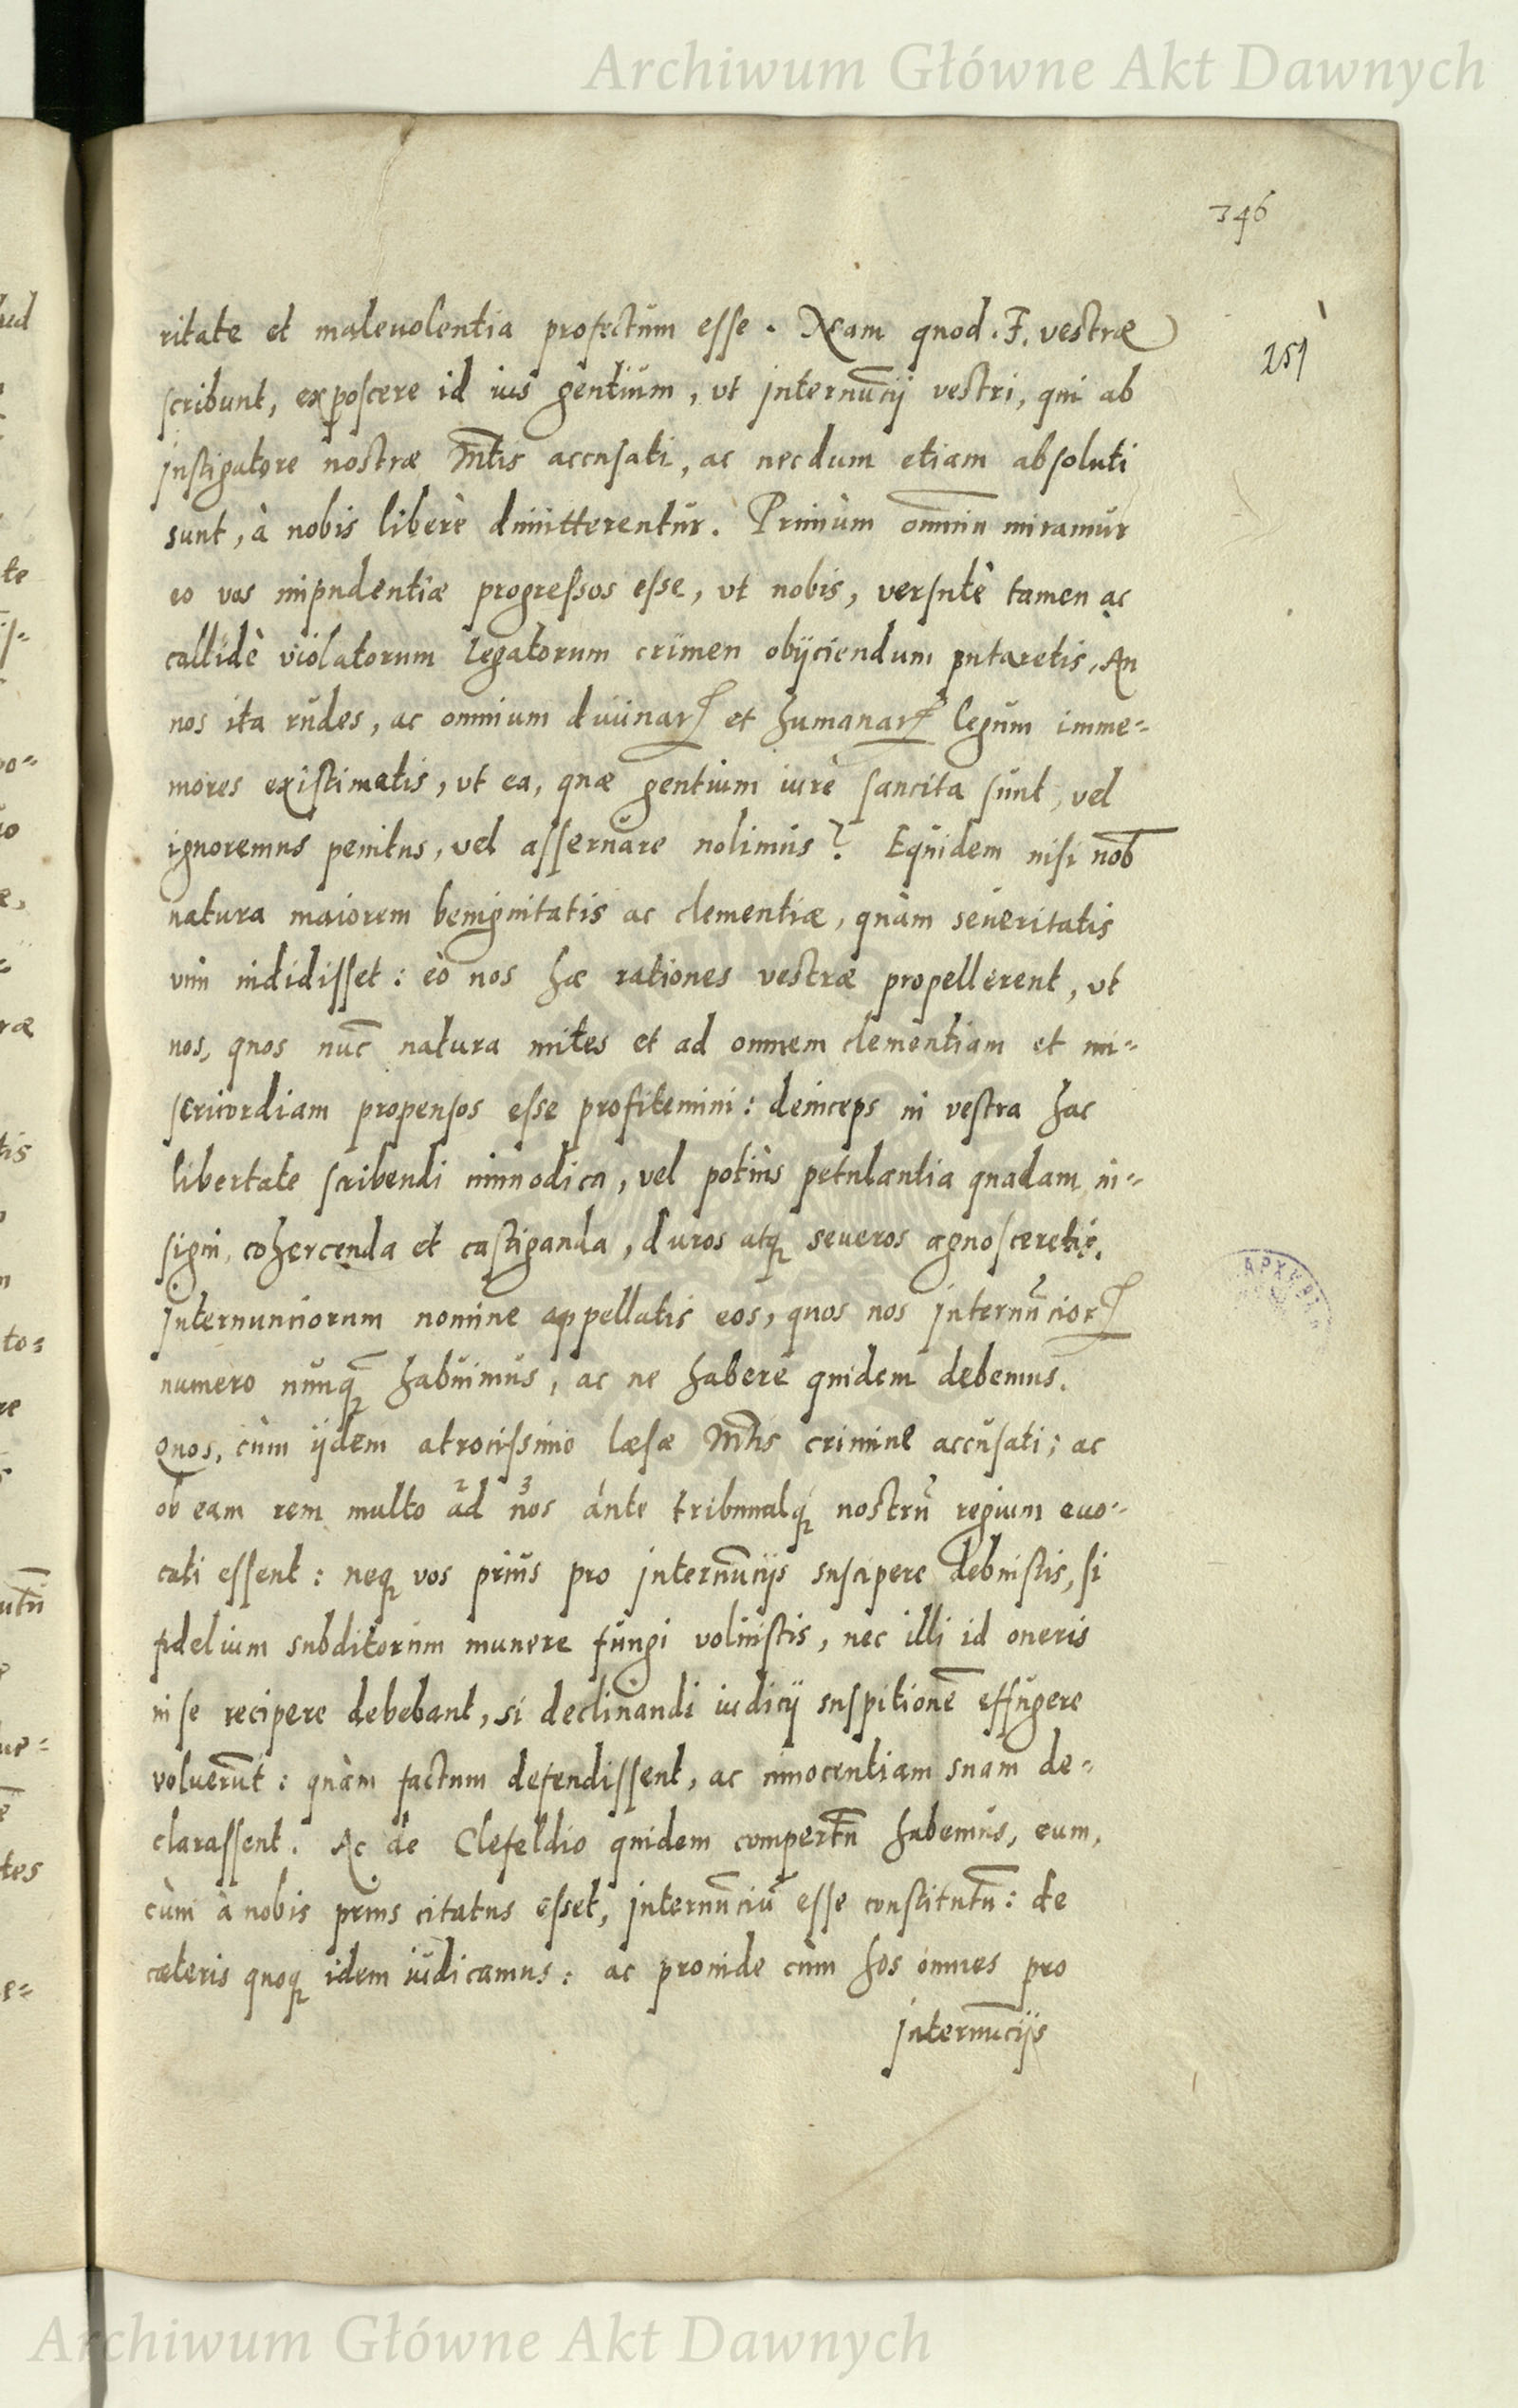 Archiwum Główne Akt Dawnych
346
251
ritate et maleuolentia profectum esse. Nam quod. F. vestræ
scribunt, exposcere id ius gentium, vt internūcij vestri, qui ab
instigatore nostræ Mtis accusati, ac necdum etiam absoluti
sunt, à nobis liberè dimitterentur. Primùm omnīm miramur
eo vos impudentiæ progressos esse, vt nobis, versutè tamen ac
callidè violatorum legatorum crimen obijciendum putaretis, An
nos ita rudes, ac omnium diuinarꝝ et humanarꝝ legum imme-
mores existimatis, vt ea, quæ gentium iure sancita sunt, vel
ignoremus penitus, vel asseruare nolimus? Equidem nisi nob̄
natura maiorem benignitatis ac clementiæ, quàm seueritatis
vim indidisset: eò nos hæ rationes vestræ propellerent, vt
nos, quos nūc natura mites et ad omnem clementiam et mi-
sericordiam propensos esse profitemini: deinceps in vestra hac
libertate scribendi immodica, vel potius petulantia quadam in-
signi, cohercenda et castiganda, duros atqꝫ seueros agnosceretis.
Internunciorum nomine appellatis eos, quos nos internūciorꝝ
numero nunqꝫ habuimus, ac ne habere quidem debemus.
Quos, cùm ijdem atrocissimo læsæ Mtis crimine accusati; ac
ob eam rem multo ad nos ante tribunalqꝫ nostrū regium euo-
cati essent: neqꝫ vos prius pro internūcijs suscipere debuistis, si
fidelium subditorum munere fungi voluistis, nec illi id oneris
in se recipere debebant, si declinandi iudicij suspitionē effugere
voluerūt: quàm factum defendissent, ac innocentiam suam de-
clarassent. Ac de Clefeldio quidem compertū habemus, eum,
cùm à nobis prius citatus esset, internūciū esse constitutū: de
cæteris quoqꝫ idem iudicamus: ac proinde cùm hos omnes pro
internūcijs
Archiwum Główne Akt Dawnych